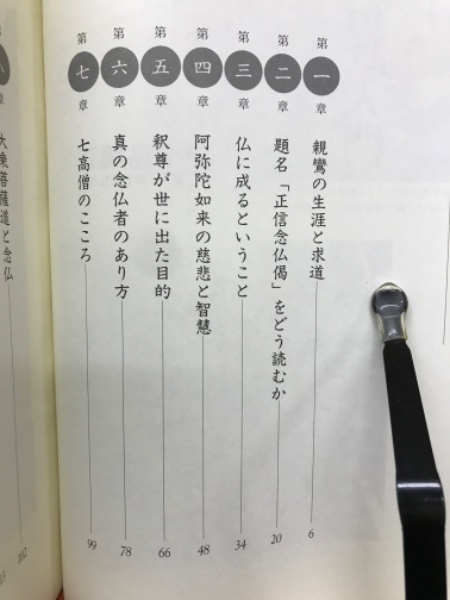 第一章 親鸞の生涯と求道 6
第二章 題名「正信念仏偈」をどう読むか 20
第三章 仏に成るということ 34
第四章 阿弥陀如来の慈悲と智慧 48
第五章 釈尊が世に出た目的 66
第六章 真の念仏者のあり方 78
第七章 七高僧のこころ 99
大乗菩薩道と念仏 102